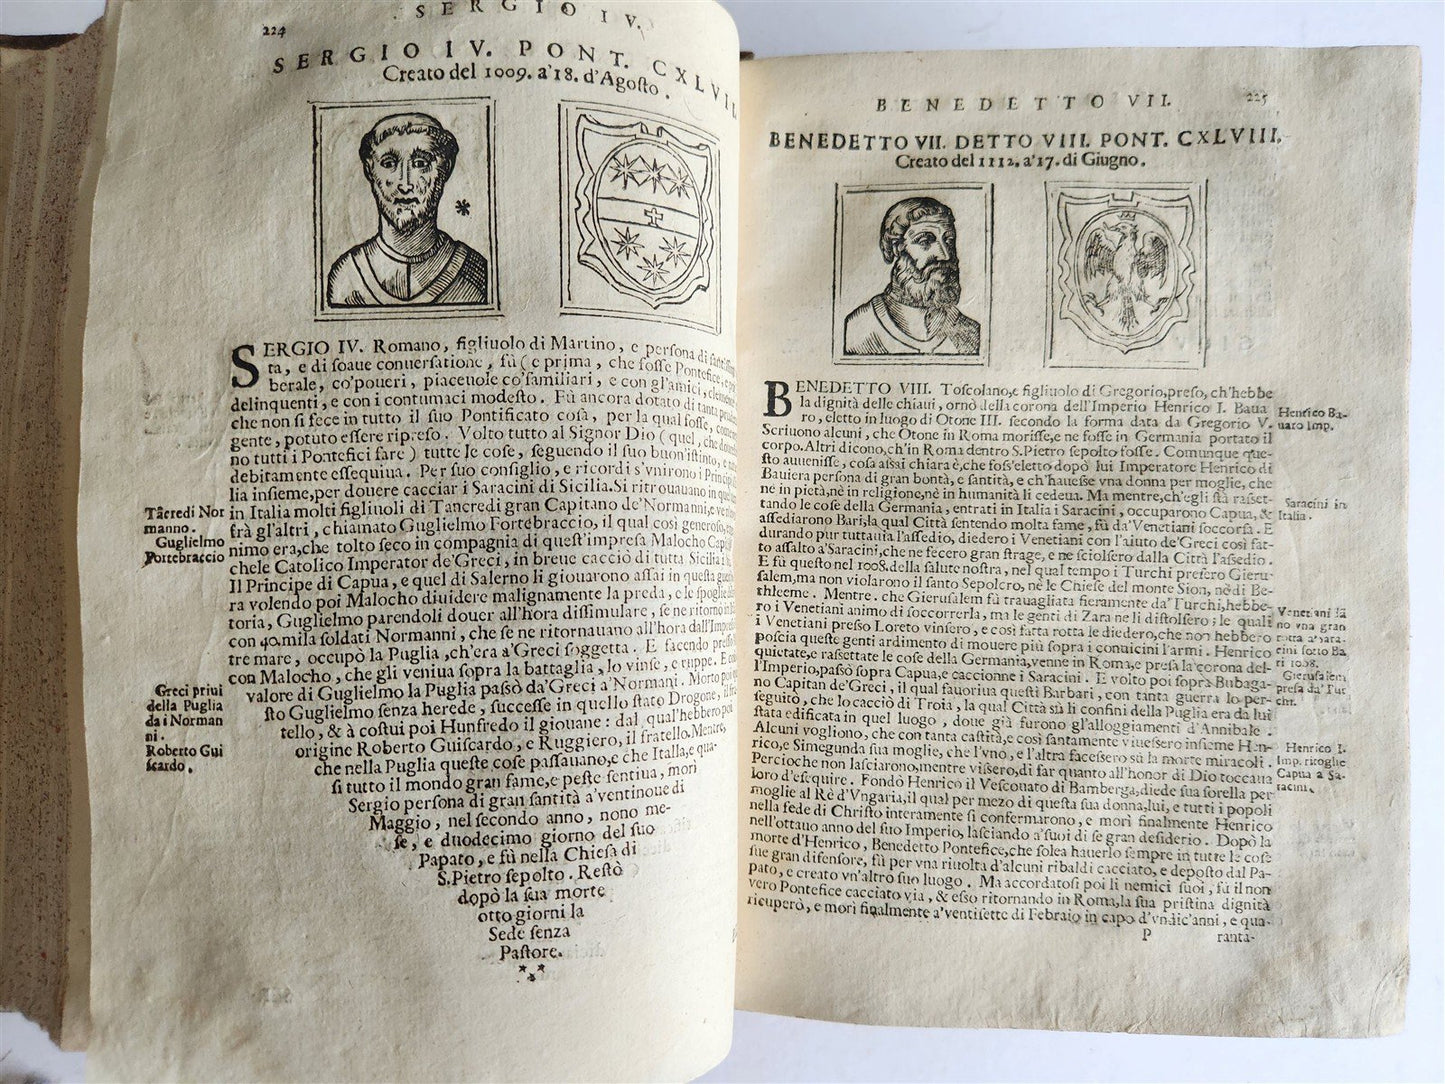 SERGIO IV.
224
SERGIO IV. PONT. CXLVII.
Creato del 1009. a'18. d'Agoſto.
SERGIO IV. Romano, figliuolo di Martino, e perſona di
ta, e di ſoaue conuerſatione, fù (e prima, che foſſe Pontefice, e
berale, co'poueri, piaceuole co'familiari, e con gl'amici, clemente
delinquenti, e con i contumaci modeſto. Fù ancora dotato di tanta
che non ſi fece in tutto il ſuo Pontificato coſa, per la qual foſſe,
gente, potuto eſſere ripreſo. Volto tutto al Signor Dio (quel, che
no tutti i Pontefici fare) tutte le coſe, ſeguendo il ſuo buon'iſtinto, e
debitamente eſſequiua. Per ſuo conſiglio, e ricordi s'vnirono i Principi
lia inſieme, per douere cacciar i Saracini di Sicilia. Si ritrouauano in
in Italia molti figliuoli di Tancredi gran Capitano de'Normanni, e
frà gl'altri, chiamato Guglielmo Fortebraccio, il qual così generoſo,
nimo era, che tolto ſeco in compagnia di queſt'impreſa Malocho
chele Catolico Imperator de'Greci, in breue cacciò di tutta Sicilia i
Il Principe di Capua, e quel di Salerno li giouarono aſſai in queſta
ra volendo poi Malocho diuidere malignamente la preda, e le ſpoglie
toria, Guglielmo parendoli douer all'hora diſſimulare, ſe ne ritornò in
con 40. mila ſoldati Normanni, che ſe ne ritornauano all'hora dall'
tre mare, occupò la Puglia, ch'era a'Greci ſoggetta. E facendo preſſo
con Malocho, che gli veniua ſopra la battaglia, lo vinſe, e ruppe. E
valore di Guglielmo la Puglia paſsò da'Greci a'Normani. Morto poi
ſto Guglielmo ſenza herede, ſucceſſe in quello ſtato Drogone, il
tello, & à coſtui poi Hunfredo il giouane: dal qual'hebbero poi
origine Roberto Guiſcardo, e Ruggiero, il fratello. Mentre,
che nella Puglia queſte coſe paſſauano, e che Italia, e qua-
ſi tutto il mondo gran fame, e peſte ſentiua, morì
Sergio perſona di gran ſantità a'ventinoue di
Maggio, nel ſecondo anno, nono me-
ſe, e duodecimo giorno del ſuo
Papato, e fù nella Chieſa di
S. Pietro ſepolto. Reſtò
dopò la ſua morte
otto giorni la
Sede ſenza
Paſtore.
Tãcredi Nor
manno.
Guglielmo
Fortebraccio
Greci priui
della Puglia
da i Norman
ni.
Roberto Gui
ſcardo.
BENEDETTO VII.
225
BENEDETTO VII. DETTO VIII. PONT. CXLVIII.
Creato del 1112. a'17. di Giugno.
BENEDETTO VIII. Toſcolano, e figliuolo di Gregorio, preſo, ch'hebbe
la dignità delle chiaui, ornò della corona dell'Imperio Henrico I. Baua
ro, eletto in luogo di Otone III. ſecondo la forma data da Gregorio V.
Scriuono alcuni, che Otone in Roma moriſſe, e ne foſſe in Germania portato il
corpo. Altri dicono, ch'in Roma dentro S. Pietro ſepolto foſſe. Comunque que-
ſto aueniſſe, coſa aſſai chiara è, che foſſ'eletto dopò lui Imperatore Henrico di
Bauiera perſona di gran bontà, e ſantità, e ch'haueſſe vna donna per moglie, che
ne in pietà, nè in religione, nè in humanità li cedeua. Ma mentre, ch'egli ſtà raſſet-
tando le coſe della Germania, entrati in Italia i Saracini, occuparono Capua, &
aſſediarono Bari, la qual Città ſentendo molta fame, fù da'Venetiani ſoccorſa. E
durando pur tuttauia l'aſſedio, diedero i Venetiani con l'aiuto de'Greci così fat-
to aſſalto a'Saracini, che ne fecero gran ſtrage, e ne ſciolſero dalla Città l'aſſedio.
E fù queſto nel 1008. della ſalute noſtra, nel qual tempo i Turchi preſero Gieru-
ſalem, ma non violarono il ſanto Sepolcro, nè le Chieſe del monte Sion, nè di Be-
thleeme. Mentre. che Gieruſalem fù trauagliata fieramente da'Turchi, hebbe-
ro i Venetiani animo di ſoccorrerla, ma le genti di Zara ne li diſtolſero; le quali
i Venetiani preſſo Loreto vinſero, e così fatta rotta le diedero, che non hebbero
poſcia queſte genti ardimento di mouere più ſopra i conuicini l'armi. Henrico
quietate, e raſſettate le coſe della Germania, venne in Roma, e preſa la corona del-
l'Imperio, paſsò ſopra Capua, e caccionne i Saracini. E volto poi ſopra Bubaga-
no Capitan de'Greci, il qual fauoriua queſti Barbari, con tanta guerra lo per-
ſeguitò, che lo cacciò di Troia, la qual Città sù li confini della Puglia era da lui
ſtata edificata in quel luogo, doue già furono gl'alloggiamenti d'Annibale.
Alcuni vogliono, che con tanta caſtità, e così ſantamente viueſſero inſieme Hen-
rico, e Simegunda ſua moglie, che l'vno, e l'altra faceſſero sù la morte miracoli.
Percioche non laſciarono, mentre viſſero, di far quanto all'honor di Dio toccaua
loro d'eſequire. Fondò Henrico il Veſcouato di Bamberga, diede ſua ſorella per
moglie al Rè d'Vngaria, il qual per mezo di queſta ſua donna, lui, e tutti i popoli
nella fede di Chriſto interamente ſi confermarono, e morì finalmente Henrico
nell'ottauo anno del ſuo Imperio, laſciando a'ſuoi di ſe gran deſiderio. Dopò la
morte d'Henrico, Benedetto Pontefice, che ſolea hauerlo ſempre in tutte le coſe
ſue gran difenſore, fù per vna riuolta d'alcuni ribaldi cacciato, e depoſto dal Pa-
pato, e creato vn'altro ſuo luogo. Ma accordatoſi poi li nemici ſuoi, fù il non
vero Pontefice cacciato via, & eſſo ritornando in Roma, la ſua priſtina dignità
ricuperò, e morì finalmente a'ventiſette di Febraio in capo d'vndic'anni, e qua-
P ranta-
Henrico Ba-
uaro Imp.
Saracini in
Italia.
Venetiani dã
no vna gran
rotta a'Sara-
cini ſotto Ba
ri 1008.
Gieruſalem
preſa da'Tur
chi.
Henrico I.
Imp. ritoglie
Capua a Sa-
racini.